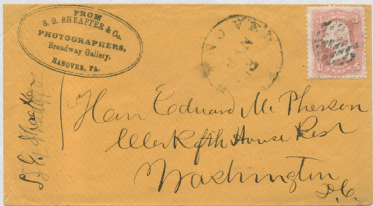 FROM
S. G. SHEAFFER & Co.
PHOTOGRAPHERS,
Broadway Gallery,
HANOVER, PA.
Hon Edward McPherson
Clerk of th House Rest
Washington
D.C.